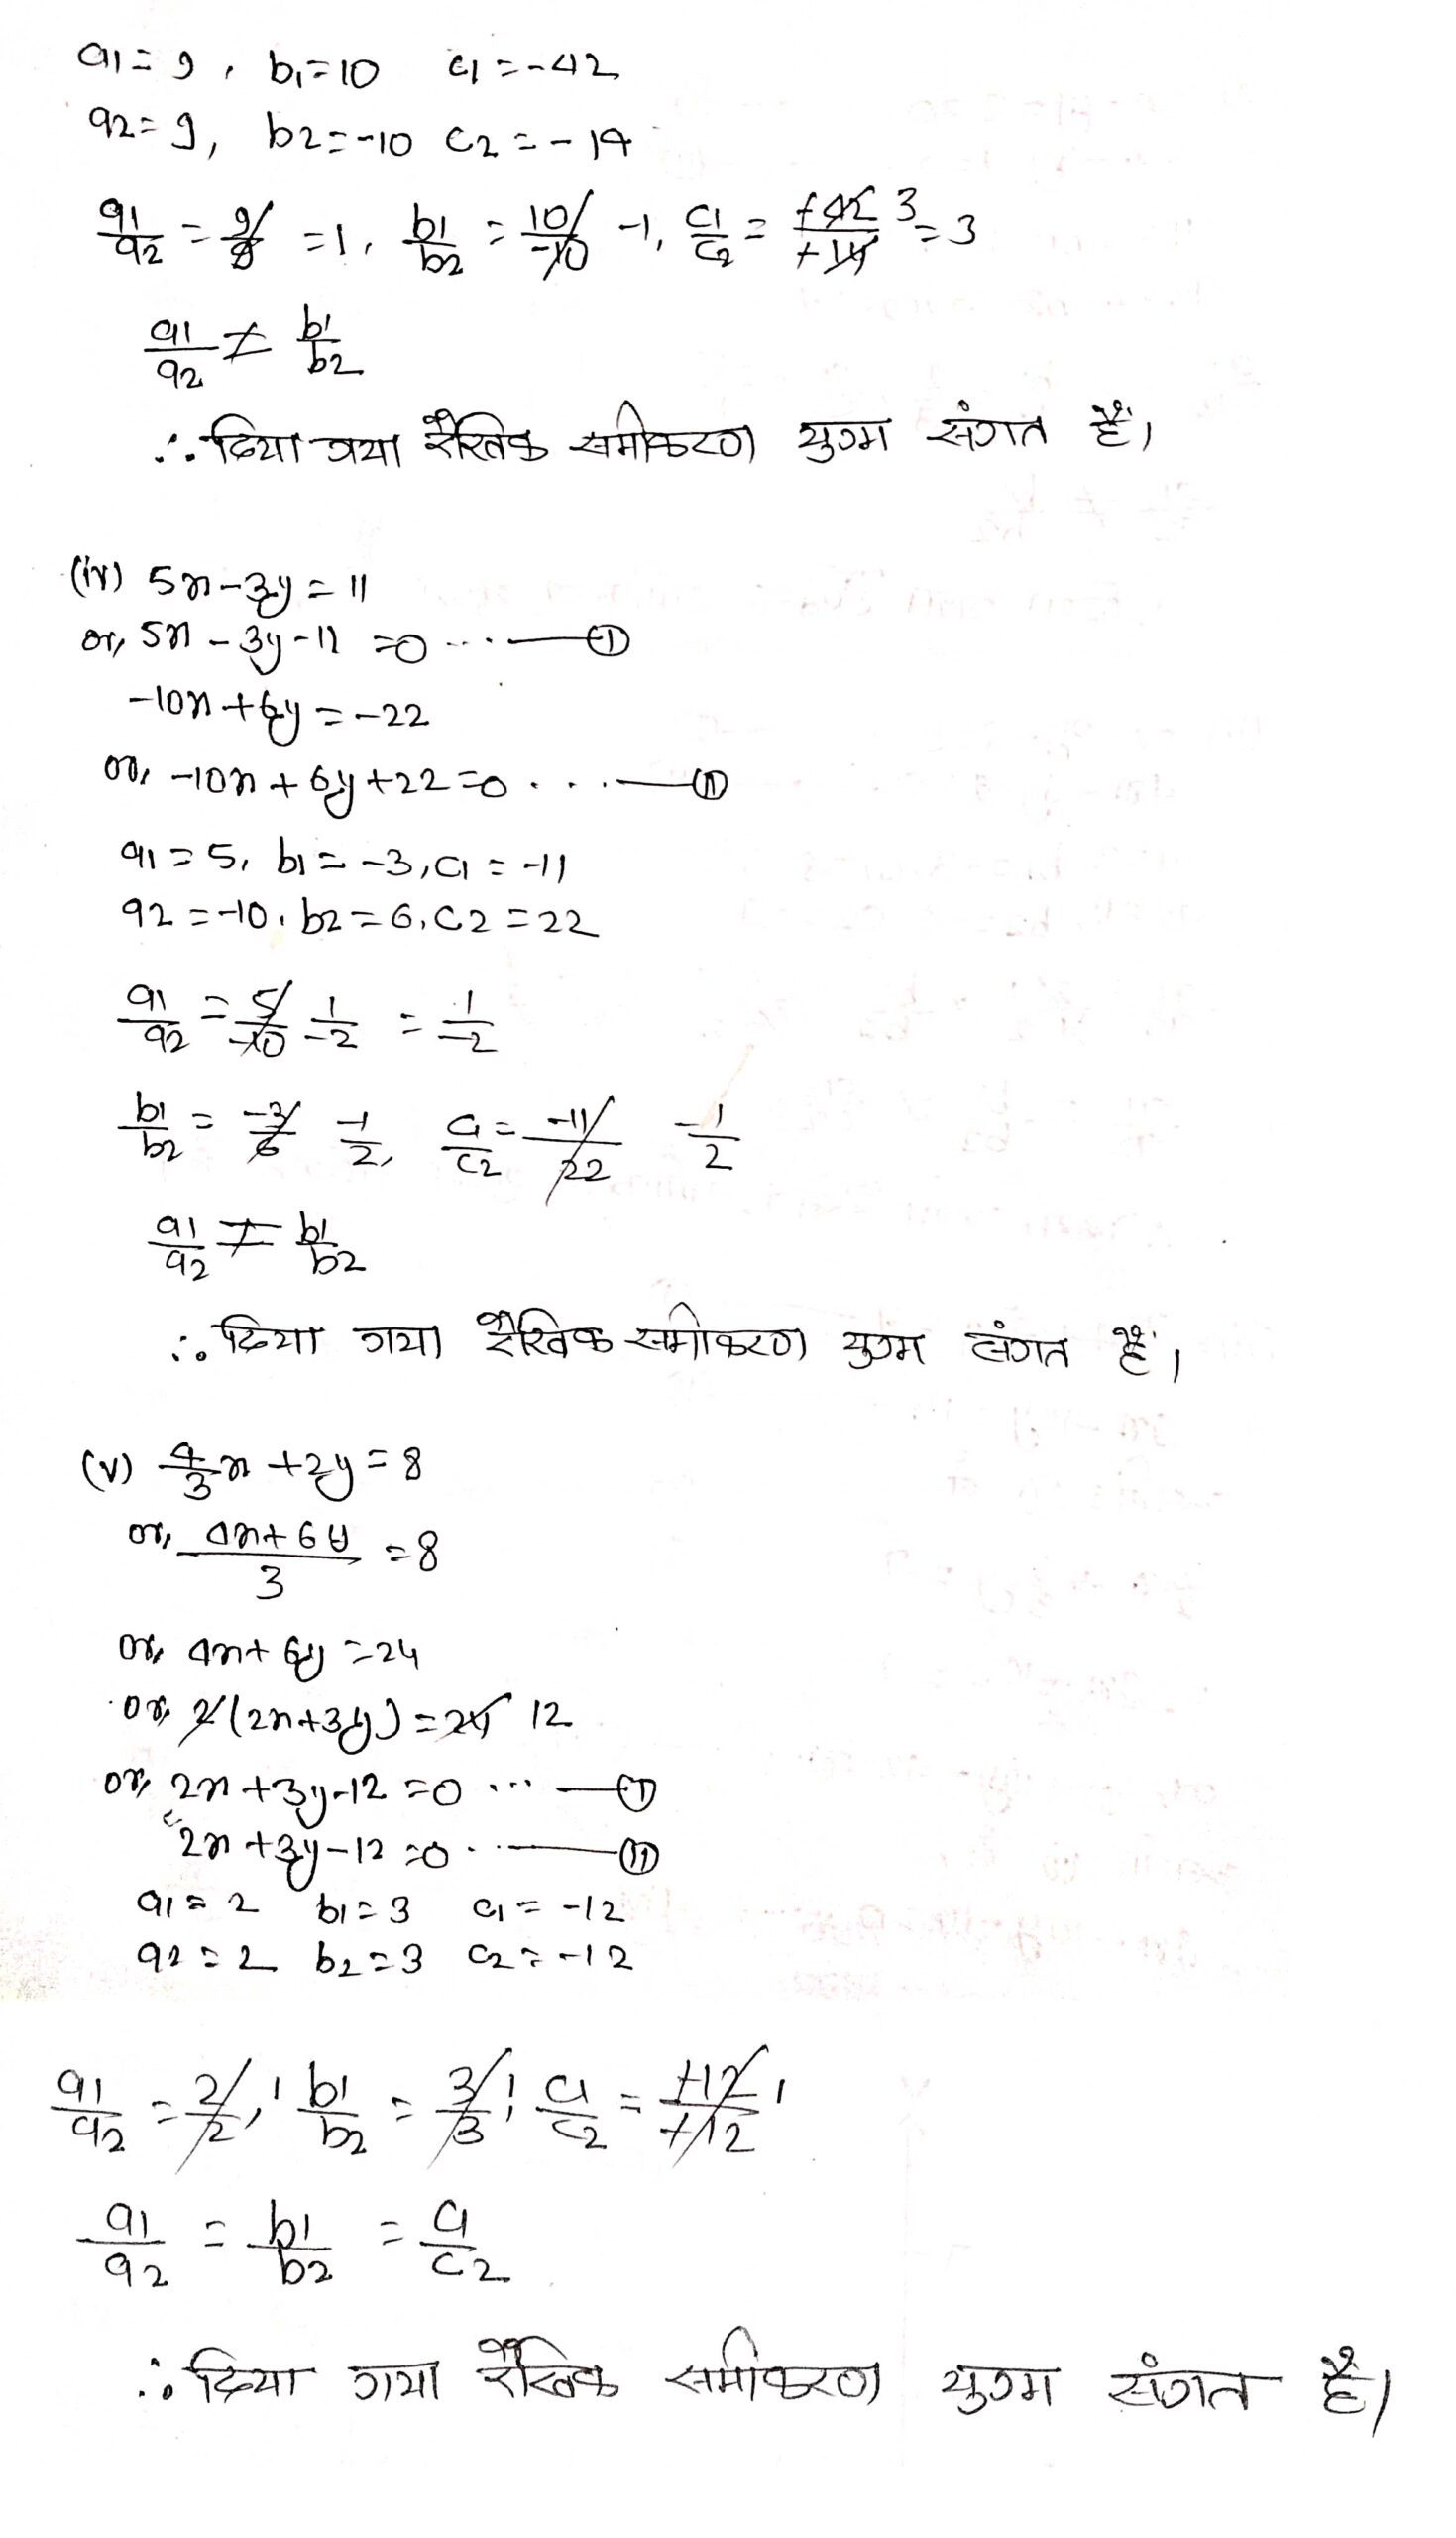 a1 = 9, b1 = 10 c1 = -42
a2 = 9, b2 = -10 c2 = -14
a1/a2 = 9/9 = 1, b1/b2 = 10/-10 -1, c1/c2 = +42/+14 3 = 3
a1/a2 ≠ b1/b2
∴ दिया गया रैखिक समीकरण युग्म संगत हैं।
(iv) 5x - 3y = 11
or, 5x - 3y - 11 = 0 ... — (I)
-10x + 6y = -22
or, -10x + 6y + 22 = 0 ... — (II)
a1 = 5, b1 = -3, c1 = -11
a2 = -10, b2 = 6, c2 = 22
a1/a2 = 5/-10 1/-2 = 1/-2
b1/b2 = -3/6 -1/2, c1/c2 = -11/22 -1/2
a1/a2 ≠ b1/b2
∴ दिया गया रैखिक समीकरण युग्म संगत हैं।
(v) 4/3 x + 2y = 8
or, 4x + 6y/3 = 8
or, 4x + 6y = 24
or, 2(2x + 3y) = 24 12
or, 2x + 3y - 12 = 0 ... — (I)
2x + 3y - 12 = 0 .. — (II)
a1 = 2 b1 = 3 c1 = -12
a2 = 2 b2 = 3 c2 = -12
a1/a2 = 2/2, 1 b1/b2 = 3/3 1, c1/c2 = +12/+12 1
a1/a2 = b1/b2 = c1/c2
∴ दिया गया रैखिक समीकरण युग्म संगत है।